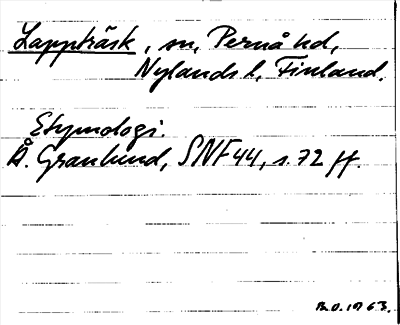 Lappträsk, sn, Pernå hd,
Nylands l., Finland.
Etymologi.
Å. Granlund, SNF 44, s. 72 ff.
B.O. 1963.